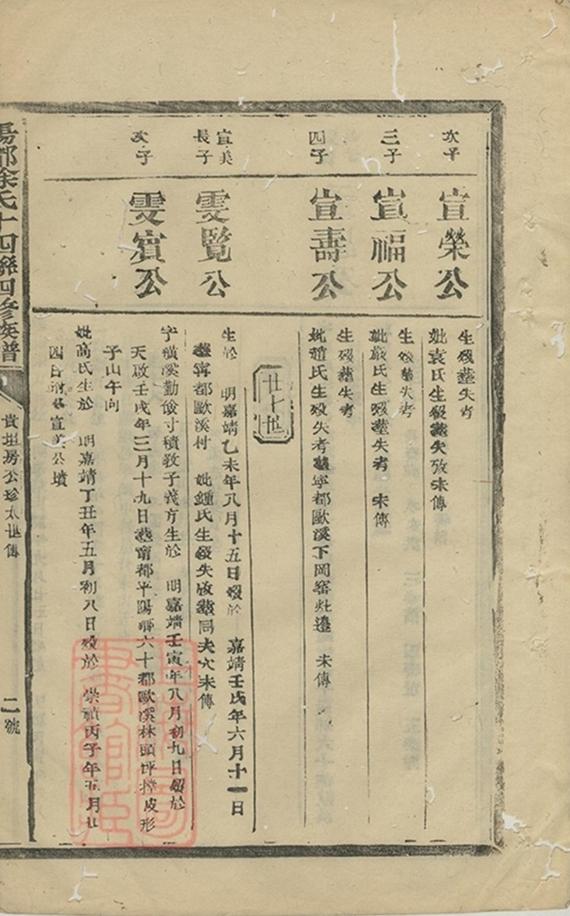 次子
宣榮公
生歿塟失考
妣袁氏生歿塟失攷未傳
三子
宣福公
生歿塟失考
妣嚴氏生歿塟失考 未傳
四子
宣壽公
生歿塟失考
妣趙氏生歿失考塟宁都歐溪下岡窰灶邉 未傳
廿七世
宣美
長子
雯覧公
生於 明嘉靖乙未年八月十五日歿於 嘉靖壬戌年六月十一日
塟寕都歐溪村 妣鍾氏生歿失攷塟同夫穴未傳
次子
雯賔公
字橫溪勤儉寸積敎子義方生於 明嘉靖壬寅年八月初九日歿於
天啟壬戌年三月十九日塟甯都平陽鄉六十都歐溪林頭坪 皮形
子山午向
妣高氏生於 明嘉靖丁丑年五月初八日歿於 崇禎丙子年五月廿
四日 宣美公墳
陽都徐氏十四聯四修族譜
貴坦房公珍太世傳
二號